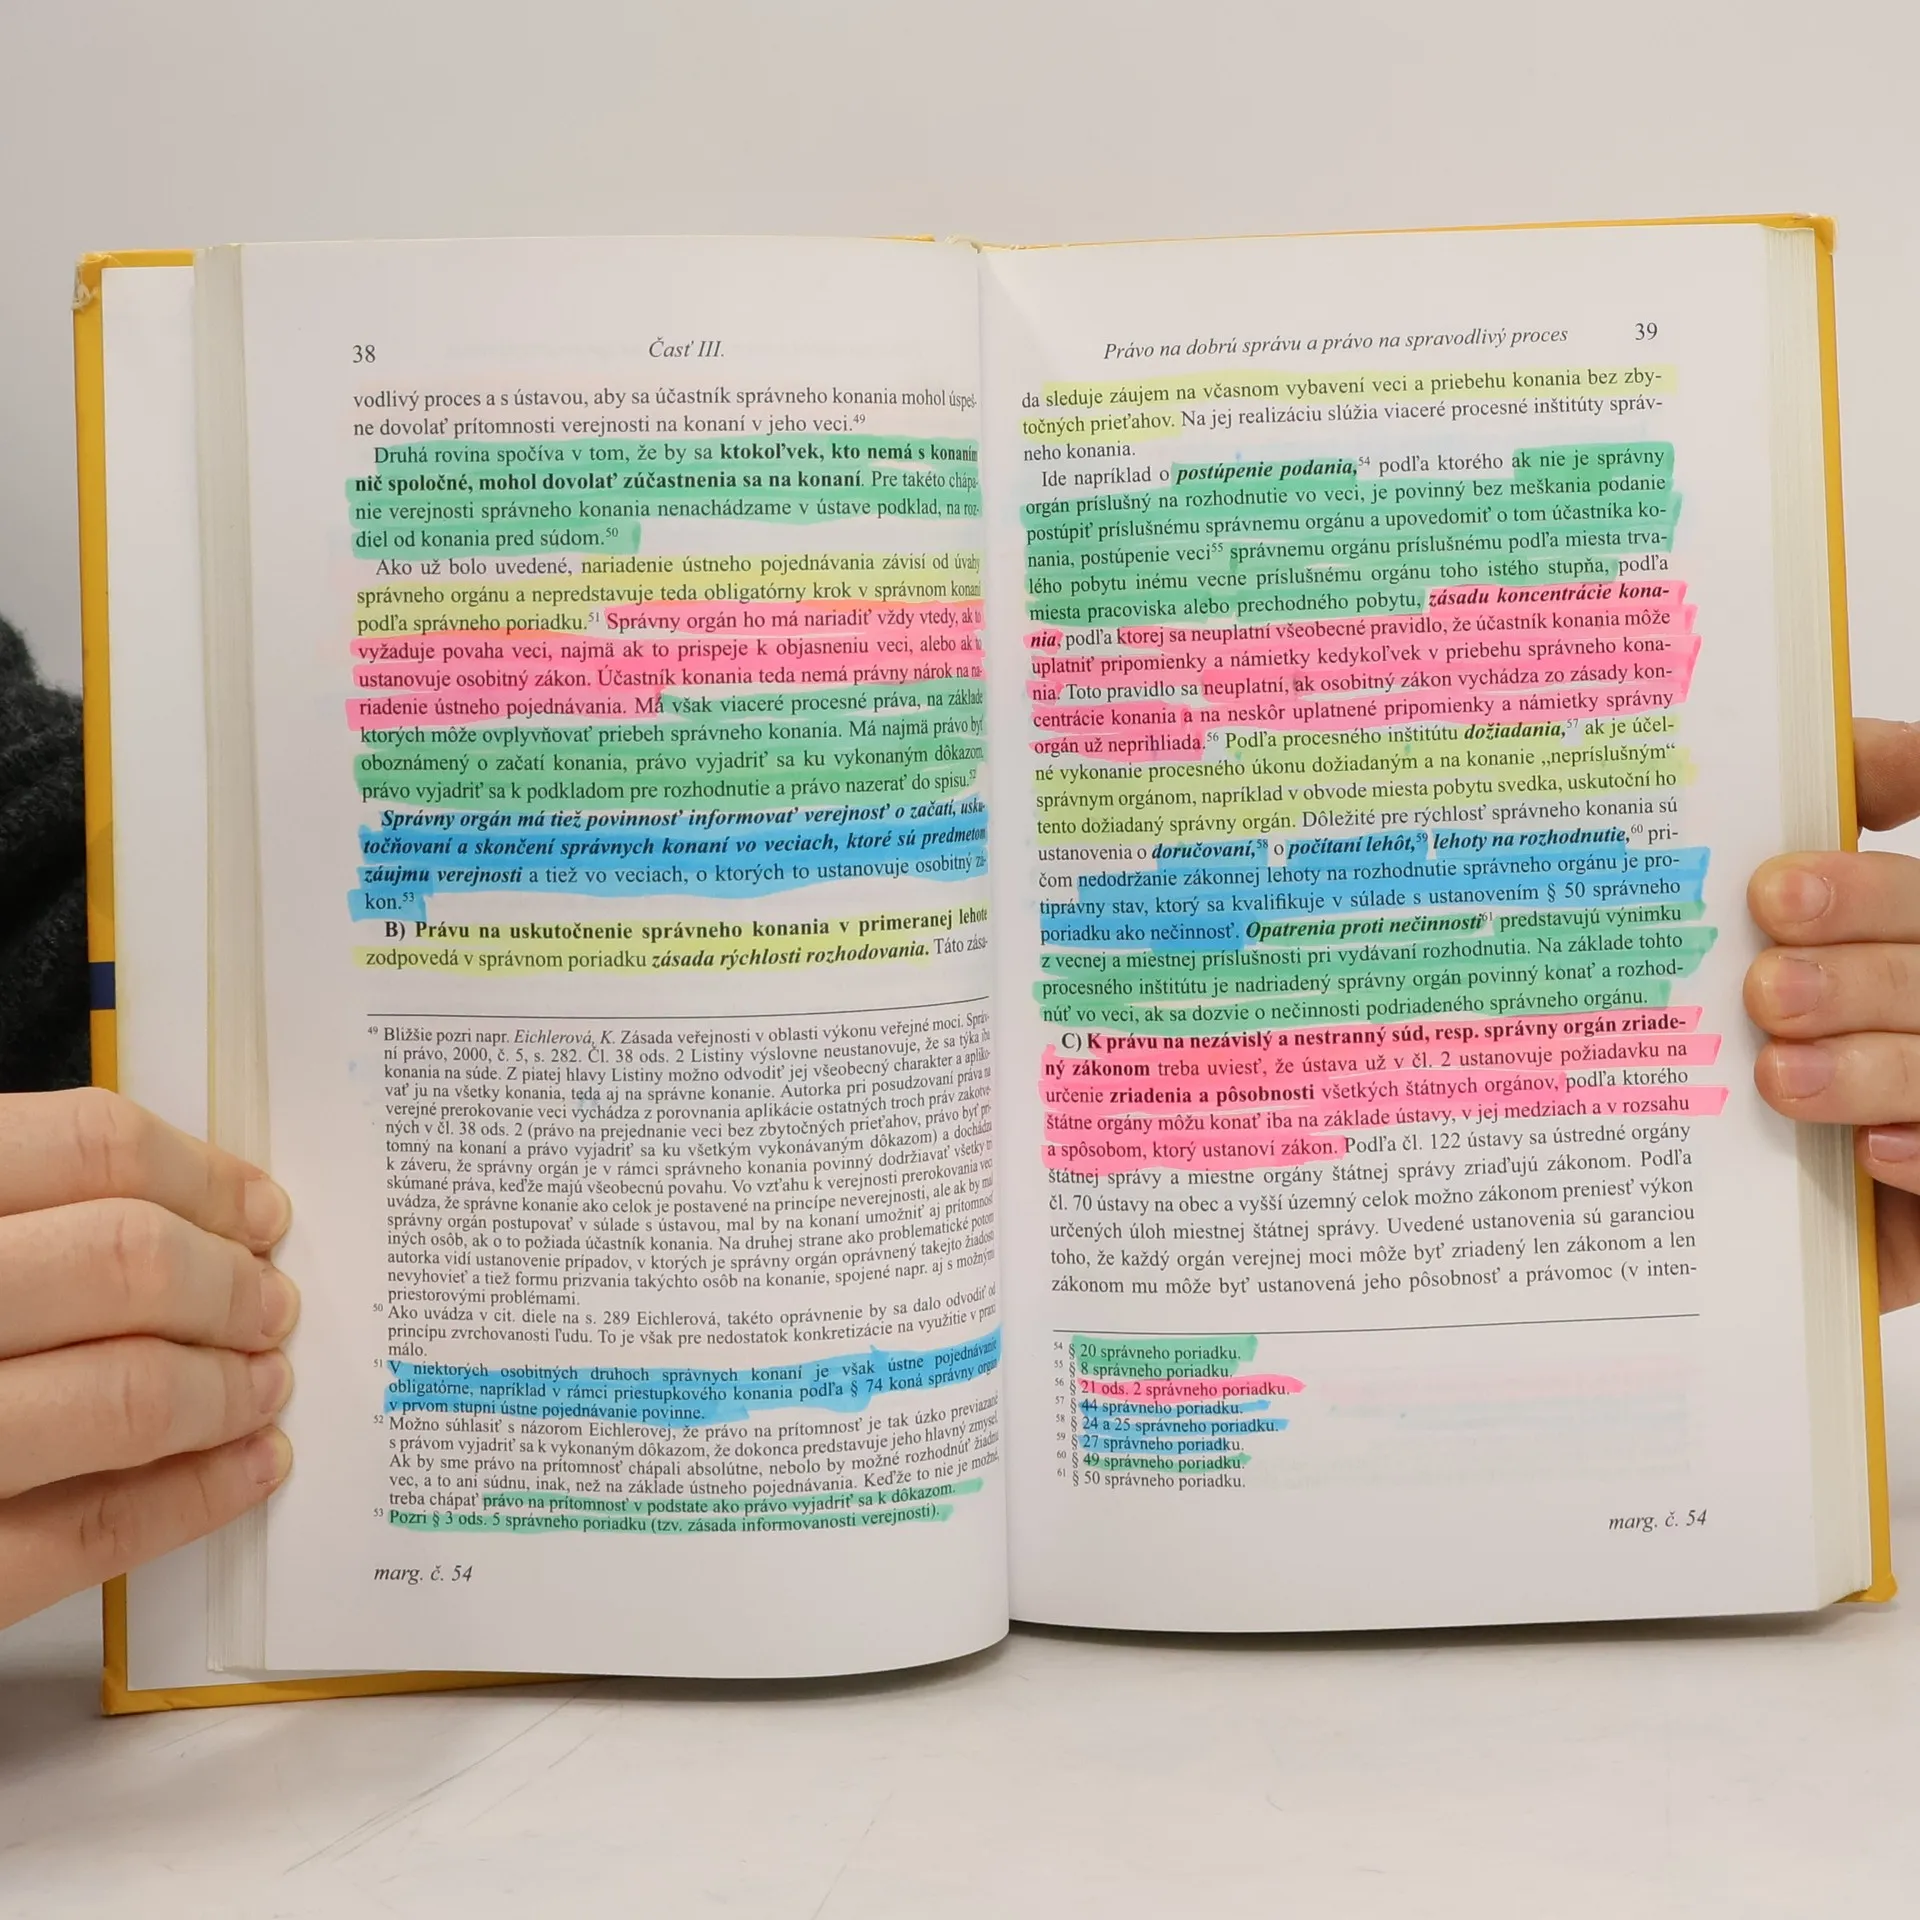 38
Časť III.
vodlivý proces a s ústavou, aby sa účastník správneho konania mohol úspeš-
ne dovolať prítomnosti verejnosti na konaní v jeho veci.49
Druhá rovina spočíva v tom, že by sa ktokoľvek, kto nemá s konaním
nič spoločné, mohol dovolať zúčastnenia sa na konaní. Pre takéto chápa-
nie verejnosti správneho konania nenachádzame v ústave podklad, na roz-
diel od konania pred súdom.50
Ako už bolo uvedené, nariadenie ústneho pojednávania závisí od úvahy
správneho orgánu a nepredstavuje teda obligatórny krok v správnom konaní
podľa správneho poriadku.51 Správny orgán ho má nariadiť vždy vtedy, ak to
vyžaduje povaha veci, najmä ak to prispeje k objasneniu veci, alebo ak to
ustanovuje osobitný zákon. Účastník konania teda nemá právny nárok na na-
riadenie ústneho pojednávania. Má však viaceré procesné práva, na základe
ktorých môže ovplyvňovať priebeh správneho konania. Má najmä právo byť
oboznámený o začatí konania, právo vyjadriť sa ku vykonaným dôkazom,
právo vyjadriť sa k podkladom pre rozhodnutie a právo nazerať do spisu.52
Správny orgán má tiež povinnosť informovať verejnosť o začatí, usku-
točňovaní a skončení správnych konaní vo veciach, ktoré sú predmetom
záujmu verejnosti a tiež vo veciach, o ktorých to ustanovuje osobitný zá-
kon.53
B) Právu na uskutočnenie správneho konania v primeranej lehote
zodpovedá v správnom poriadku zásada rýchlosti rozhodovania. Táto zása-
49 Bližšie pozri napr. Eichlerová, K. Zásada veřejnosti v oblasti výkonu veřejné moci. Správ-
ní právo, 2000, č. 5, s. 282. Čl. 38 ods. 2 Listiny výslovne neustanovuje, že sa týka iba
konania na súde. Z piatej hlavy Listiny možno odvodiť jej všeobecný charakter a apliko-
vať ju na všetky konania, teda aj na správne konanie. Autorka pri posudzovaní práva na
verejné prerokovanie veci vychádza z porovnania aplikácie ostatných troch práv zakotve-
ných v čl. 38 ods. 2 (právo na prejednanie veci bez zbytočných prieťahov, právo byť prí-
tomný na konaní a právo vyjadriť sa ku všetkým vykonávaným dôkazom) a dochádza
k záveru, že správny orgán je v rámci správneho konania povinný dodržiavať všetky tri
skúmané práva, keďže majú všeobecnú povahu. Vo vzťahu k verejnosti prerokovania veci
uvádza, že správne konanie ako celok je postavené na princípe neverejnosti, ale ak by mal
správny orgán postupovať v súlade s ústavou, mal by na konaní umožniť aj prítomnosť
iných osôb, ak o to požiada účastník konania. Na druhej strane ako problematické potom
autorka vidí ustanovenie prípadov, v ktorých je správny orgán oprávnený takejto žiadosti
nevyhovieť a tiež formu prizvania takýchto osôb na konanie, spojené napr. aj s možným
priestorovými problémami.
50 Ako uvádza v cit. diele na s. 289 Eichlerová, takéto oprávnenie by sa dalo odvodiť od
princípu zvrchovanosti ľudu. To je však pre nedostatok konkretizácie na využitie v praxi
málo.
51 V niektorých osobitných druhoch správnych konaní je však ústne pojednávanie
obligatórne, napríklad v rámci priestupkového konania podľa § 74 koná správny orgán
v prvom stupni ústne pojednávanie povinne.
52 Možno súhlasiť s názorom Eichlerovej, že právo na prítomnosť je tak úzko previazané
s právom vyjadriť sa k vykonaným dôkazom, že dokonca predstavuje jeho hlavný zmysel.
Ak by sme právo na prítomnosť chápali absolútne, nebolo by možné rozhodnúť žiadnu
vec, a to ani súdnu, inak, než na základe ústneho pojednávania. Keďže to nie je možné,
treba chápať právo na prítomnosť v podstate ako právo vyjadriť sa k dôkazom.
53 Pozri § 3 ods. 5 správneho poriadku (tzv. zásada informovanosti verejnosti).
marg. č. 54
Právo na dobrú správu a právo na spravodlivý proces
39
da sleduje záujem na včasnom vybavení veci a priebehu konania bez zby-
točných prieťahov. Na jej realizáciu slúžia viaceré procesné inštitúty správ-
neho konania.
Ide napríklad o postúpenie podania,54 podľa ktorého ak nie je správny
orgán príslušný na rozhodnutie vo veci, je povinný bez meškania podanie
postúpiť príslušnému správnemu orgánu a upovedomiť o tom účastníka ko-
nania, postúpenie veci55 správnemu orgánu príslušnému podľa miesta trva-
lého pobytu inému vecne príslušnému orgánu toho istého stupňa, podľa
miesta pracoviska alebo prechodného pobytu, zásadu koncentrácie kona-
nia, podľa ktorej sa neuplatní všeobecné pravidlo, že účastník konania môže
uplatniť pripomienky a námietky kedykoľvek v priebehu správneho kona-
nia. Toto pravidlo sa neuplatní, ak osobitný zákon vychádza zo zásady kon-
centrácie konania a na neskôr uplatnené pripomienky a námietky správny
orgán už neprihliada.56 Podľa procesného inštitútu dožiadania,57 ak je účel-
né vykonanie procesného úkonu dožiadaným a na konanie „nepríslušným“
správnym orgánom, napríklad v obvode miesta pobytu svedka, uskutoční ho
tento dožiadaný správny orgán. Dôležité pre rýchlosť správneho konania sú
ustanovenia o doručovaní,58 o počítaní lehôt,59 lehoty na rozhodnutie,60 pri-
čom nedodržanie zákonnej lehoty na rozhodnutie správneho orgánu je pro-
tiprávny stav, ktorý sa kvalifikuje v súlade s ustanovením § 50 správneho
poriadku ako nečinnosť. Opatrenia proti nečinnosti61 predstavujú výnimku
z vecnej a miestnej príslušnosti pri vydávaní rozhodnutia. Na základe tohto
procesného inštitútu je nadriadený správny orgán povinný konať a rozhod-
núť vo veci, ak sa dozvie o nečinnosti podriadeného správneho orgánu.
C) K právu na nezávislý a nestranný súd, resp. správny orgán zriade-
ný zákonom treba uviesť, že ústava už v čl. 2 ustanovuje požiadavku na
určenie zriadenia a pôsobnosti všetkých štátnych orgánov, podľa ktorého
štátne orgány môžu konať iba na základe ústavy, v jej medziach a v rozsahu
a spôsobom, ktorý ustanoví zákon. Podľa čl. 122 ústavy sa ústredné orgány
štátnej správy a miestne orgány štátnej správy zriaďujú zákonom. Podľa
čl. 70 ústavy na obec a vyšší územný celok možno zákonom preniesť výkon
určených úloh miestnej štátnej správy. Uvedené ustanovenia sú garanciou
toho, že každý orgán verejnej moci môže byť zriadený len zákonom a len
zákonom mu môže byť ustanovená jeho pôsobnosť a právomoc (v inten-
54 § 20 správneho poriadku.
55 § 8 správneho poriadku.
56 § 21 ods. 2 správneho poriadku.
57 § 44 správneho poriadku.
58 § 24 a 25 správneho poriadku.
59 § 27 správneho poriadku.
60 § 49 správneho poriadku.
61 § 50 správneho poriadku.
marg. č. 54